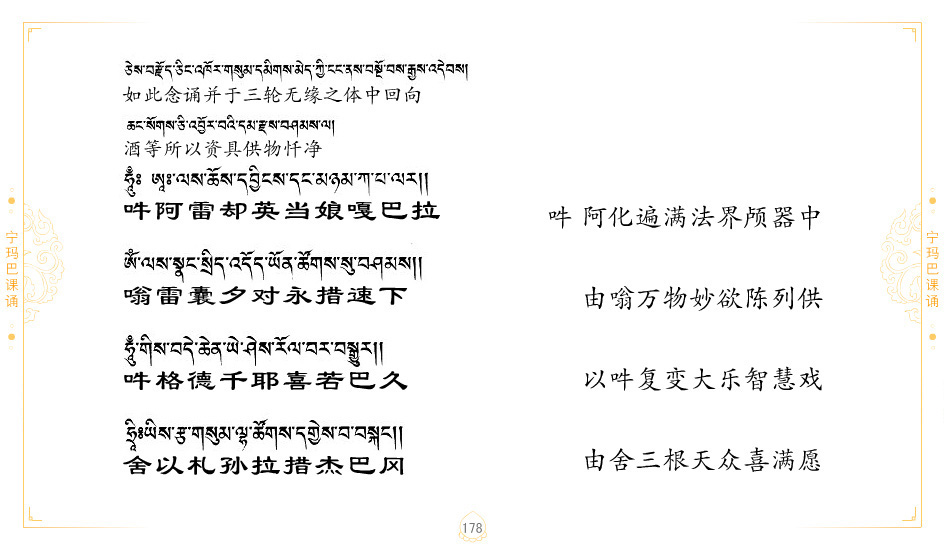 ཅེས་བརྗོད་ཅིང་འཁོར་གསུམ་དམིགས་མེད་ཀྱི་ངང་ནས་བསྔོ་བས་རྒྱས་འདེབས།
如此念诵并于三轮无缘之体中回向
ཆང་སོགས་ཅི་འབྱོར་བའི་དམ་རྫས་བཤམས་ལ།
酒等所以资具供物忏净
ཧཱུྃ༔ ཨཱཿ་ལས་ཆོས་དབྱིངས་དང་མཉམ་ཀ་པ་ལར།།
吽阿雷却英当娘嘎巴拉
吽 阿化遍满法界颅器中
ༀ་ལས་སྣང་སྲིད་འདོད་ཡོན་ཚོགས་སུ་བཤམས།།
嗡雷囊夕对永措速下
由嗡万物妙欲陈列供
ཧཱུྃ་གིས་བདེ་ཆེན་ཡེ་ཤེས་རོལ་བར་བསྒྱུར།།
吽格德千耶喜若巴久
以吽复变大乐智慧戏
ཧྲཱིཿཡིས་རྩ་གསུམ་ལྷ་ཚོགས་དགྱེས་པ་བསྐང་།།
舍以札孙拉措杰巴冈
由舍三根天众喜满愿
宁玛巴课诵
宁玛巴课诵
178